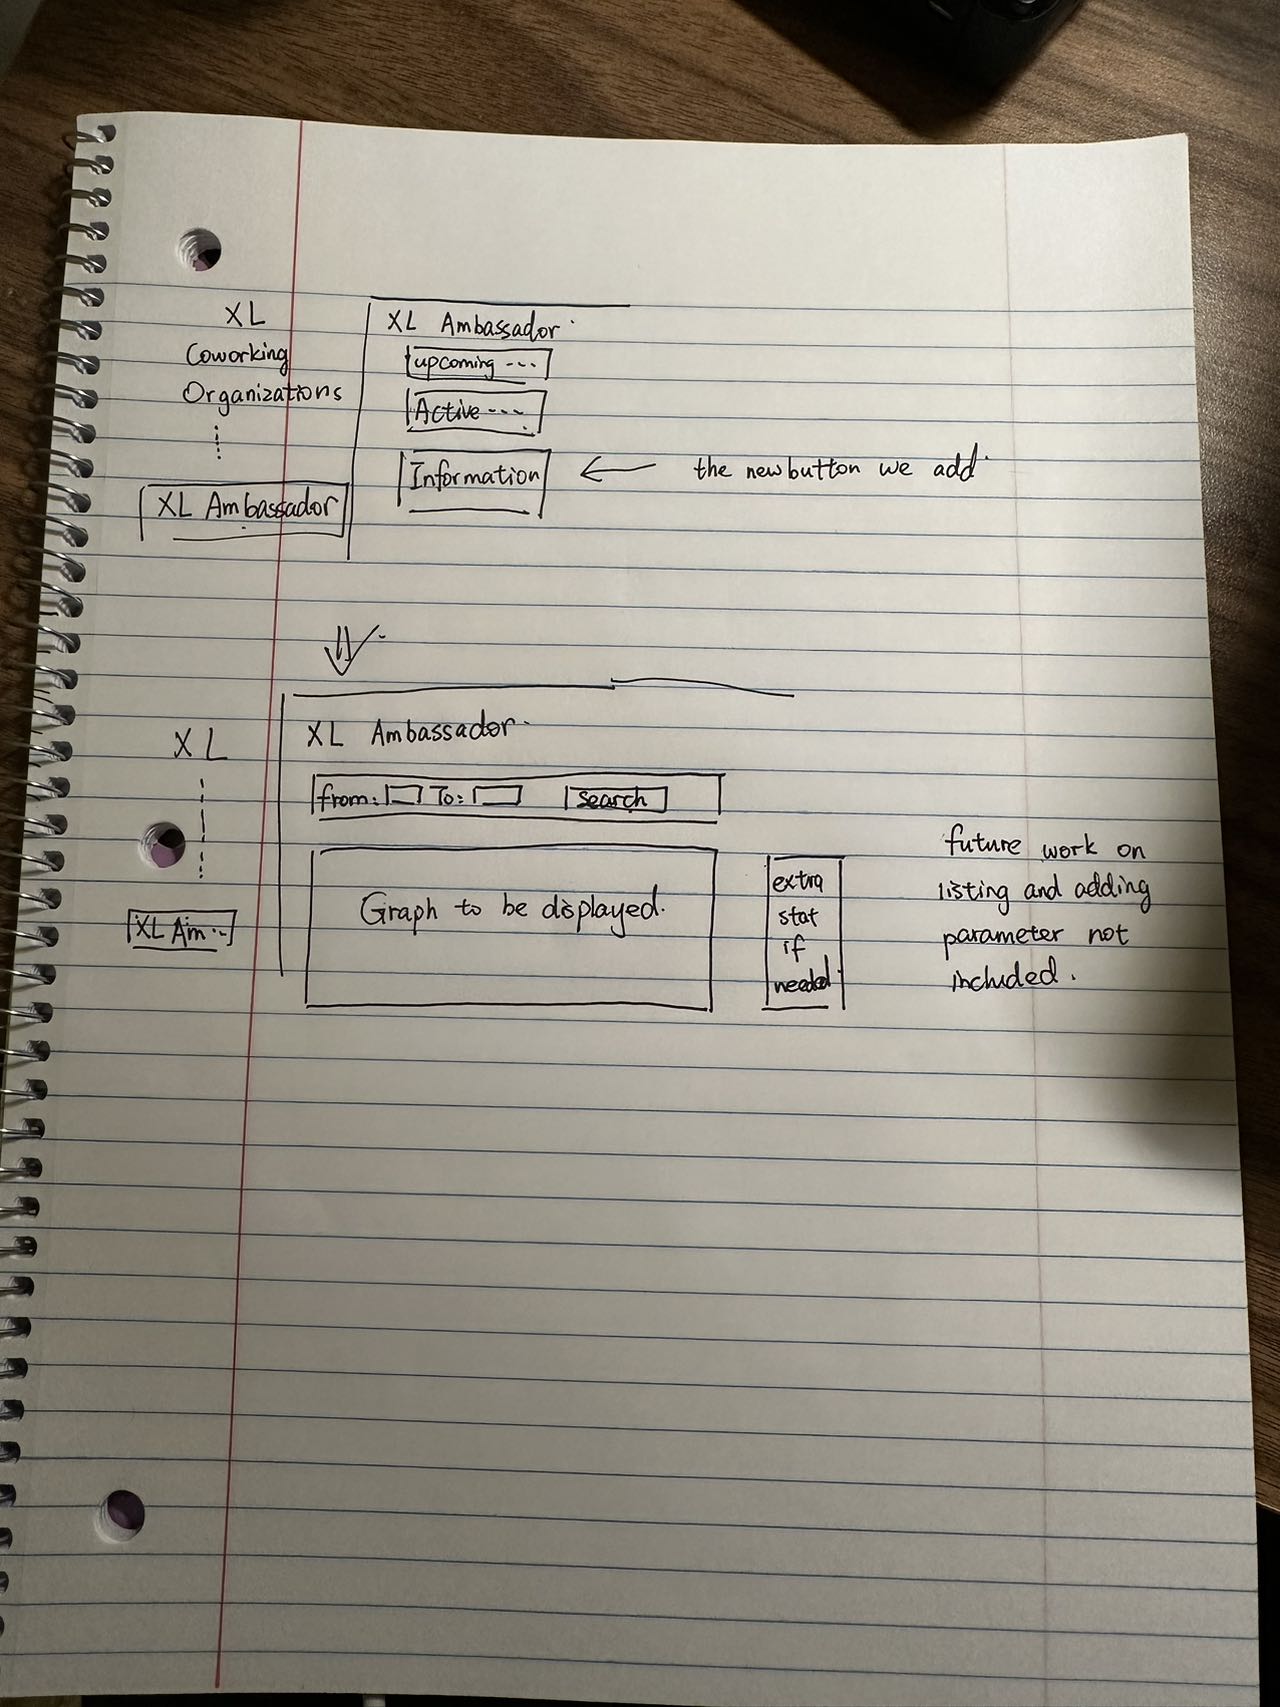 XL
Coworking
Organizations
XL Ambassador
XL Ambassador
upcoming ---
Active ---
Information
the new button we add
XL
XL Am --
XL Ambassador
from: To: Search
Graph to be displayed.
extra
stat
if
needed
future work on
listing and adding
parameter not
included.